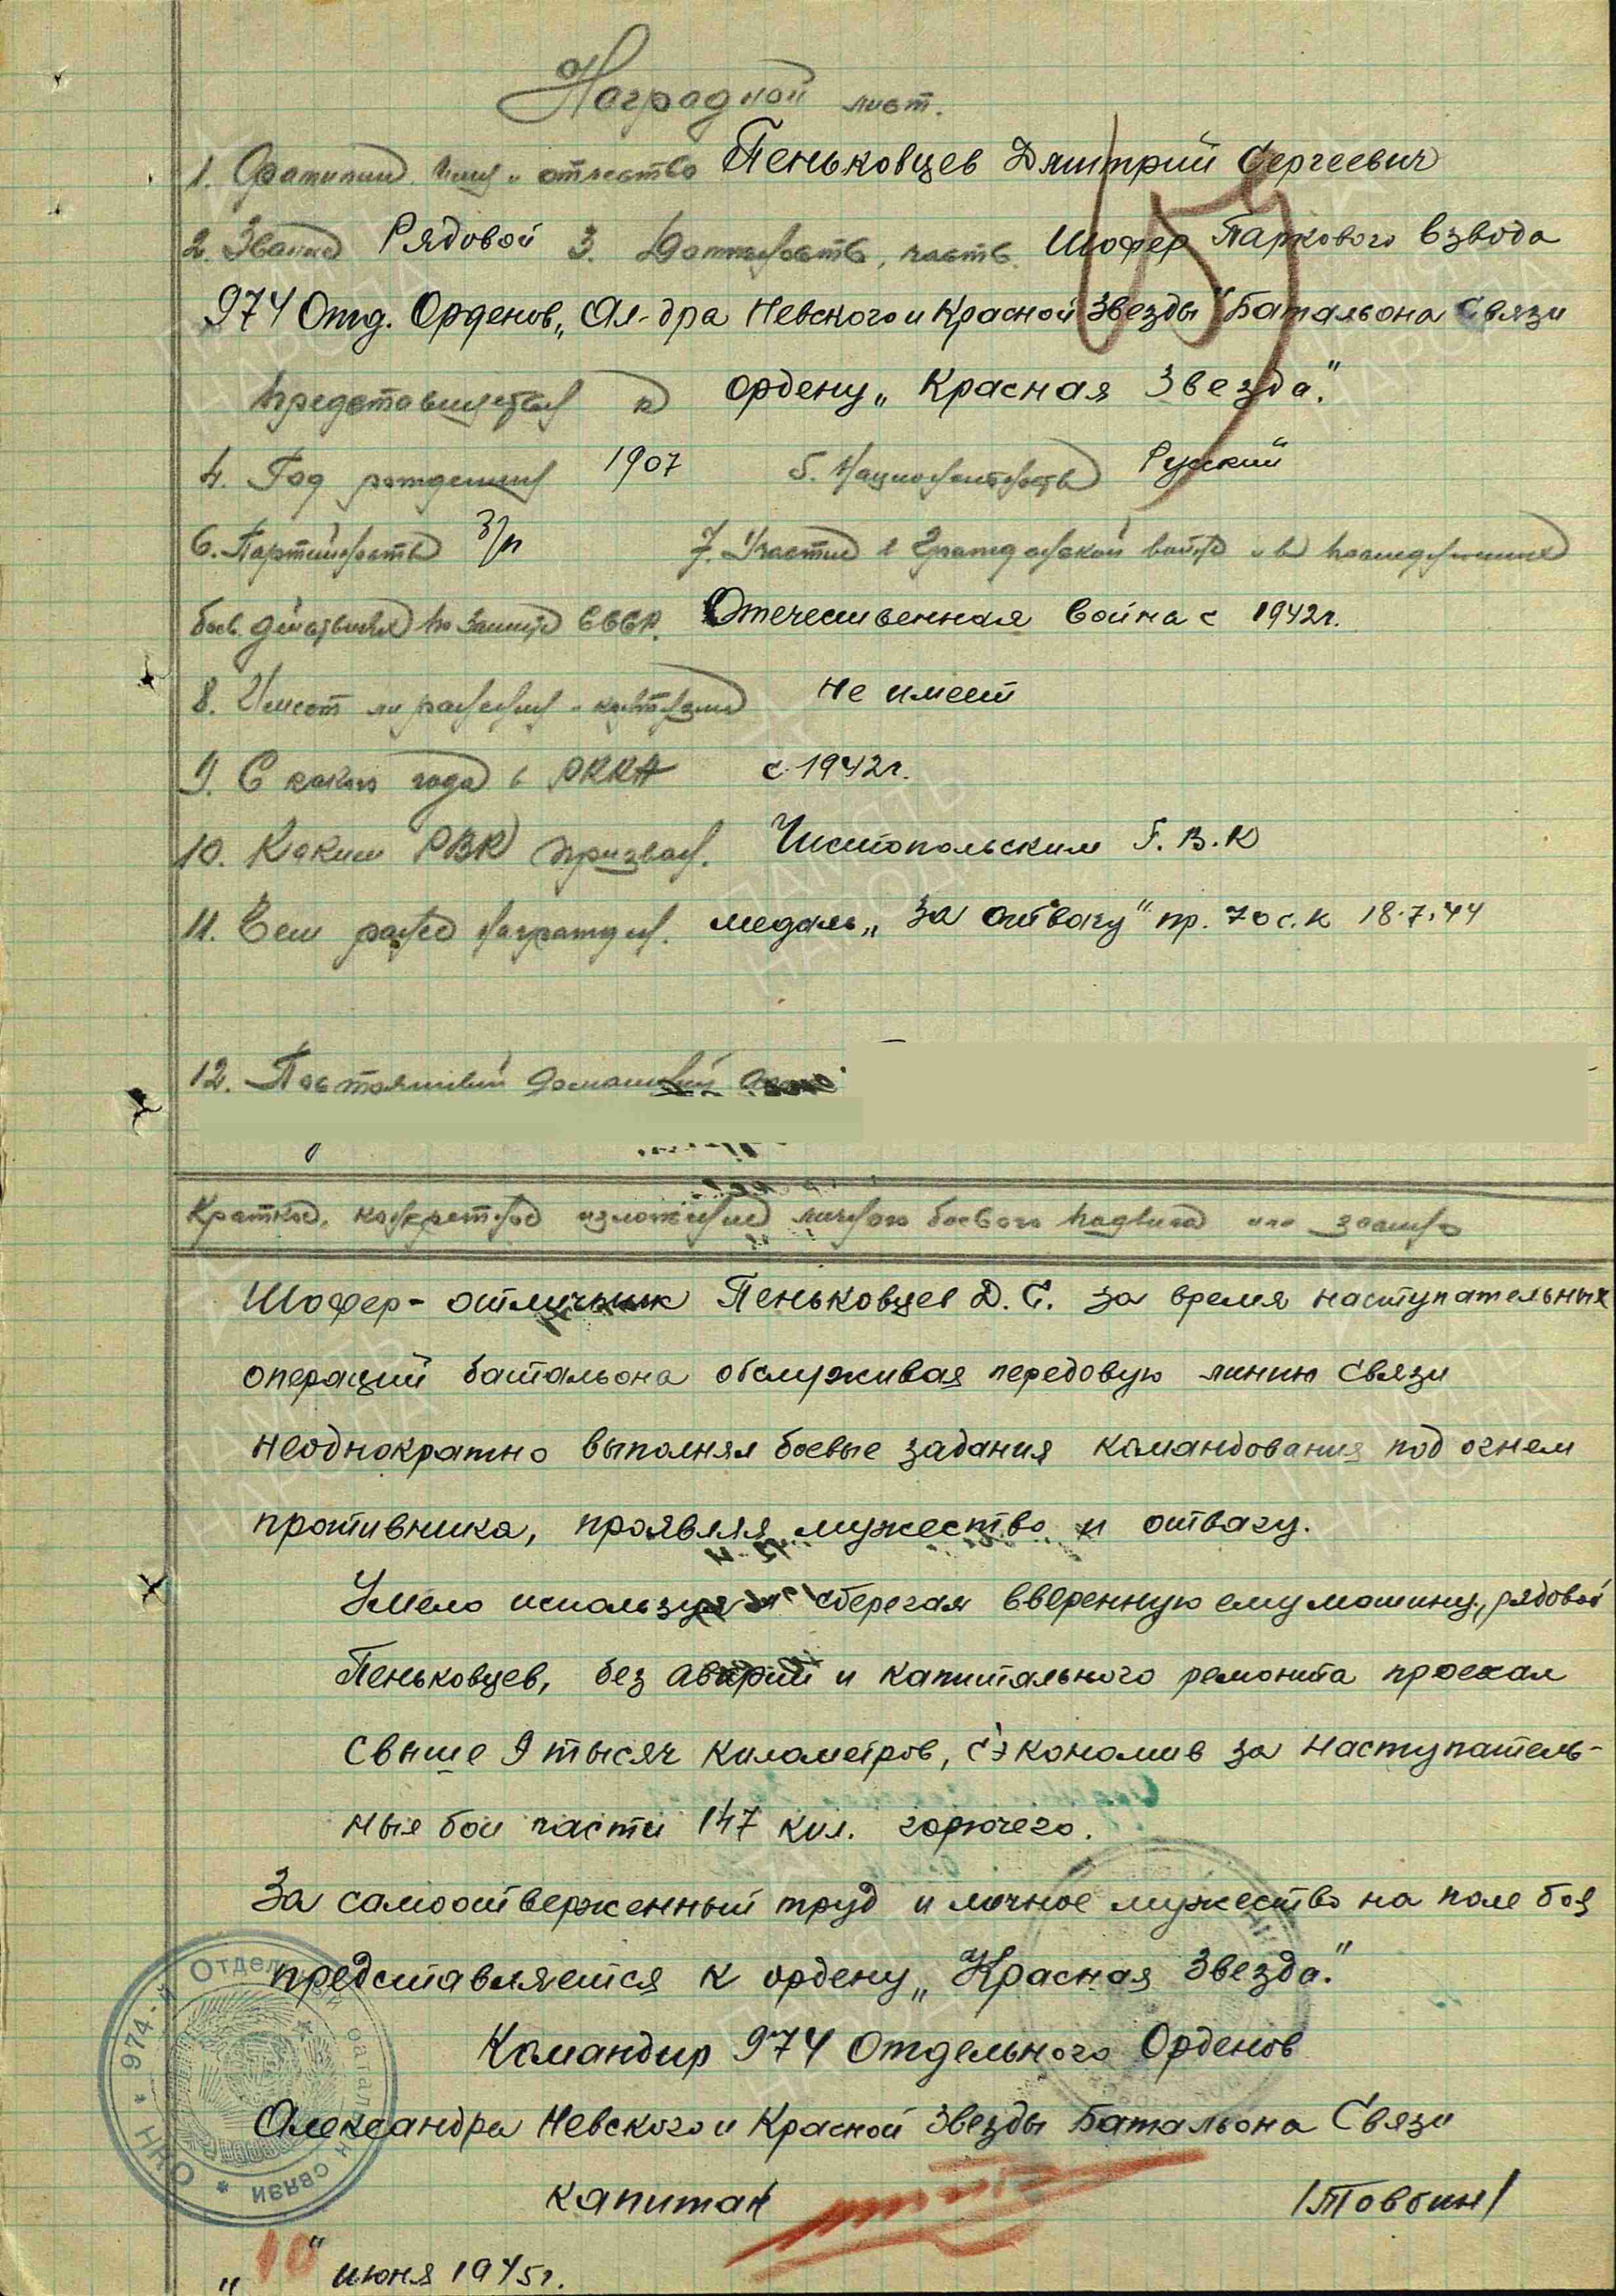 Наградной лист.
1. Фамилия, имя и отчество Пеньковцев Дмитрий Сергеевич
2. Звание Рядовой 3. Должность, часть. Шофер Паркового взвода
974 Отд. Орденов „Ал-дра Невского и Красной Звезды" Батальона Связи
представляется к ордену „Красная Звезда".
4. Год рождения 1907 5. Национальность Руский
6. Партийность б/п 7. Участие в Гражданской войне и в последующих
боев. действиях по защите СССР. Отечественная война с 1942г.
8. Имеет ли ранения и контузии не имеет
9. С какого года в РККА с 1942г.
10. Каким РВК призван. Чистопольским Г.В.К
11. Чем ранее награжден. медаль „За отвагу" пр. 70 с.к 18.7.44
12. Постоянный домашний
Краткое, конкретное изложение личного боевого подвига или заслуг
Шофер-отличник Пеньковцев Д.С. за время наступательных
операций батальона обслуживая передовую линию связи
неоднократно выполнял боевые задания командования под огнем
противника, проявляя мужество и отвагу.
Умело используя и сберегая вверенную ему машину, рядовой
Пеньковцев, без аварий и капитального ремонта проехал
свыше 9 тысяч километров, сэкономив за наступатель-
ные бои части 147 кил. горючего.
За самоотверженный труд и личное мужество на поле боя
представляется к ордену „Красная Звезда."
Командир 974 Отдельного Орденов
Александра Невского и Красной Звезды Батальона Связи
капитан /Товбин/
„10" июня 1945г.
974-й Отдельный батальон связи * НКО *
ПАМЯТЬ НАРОДА